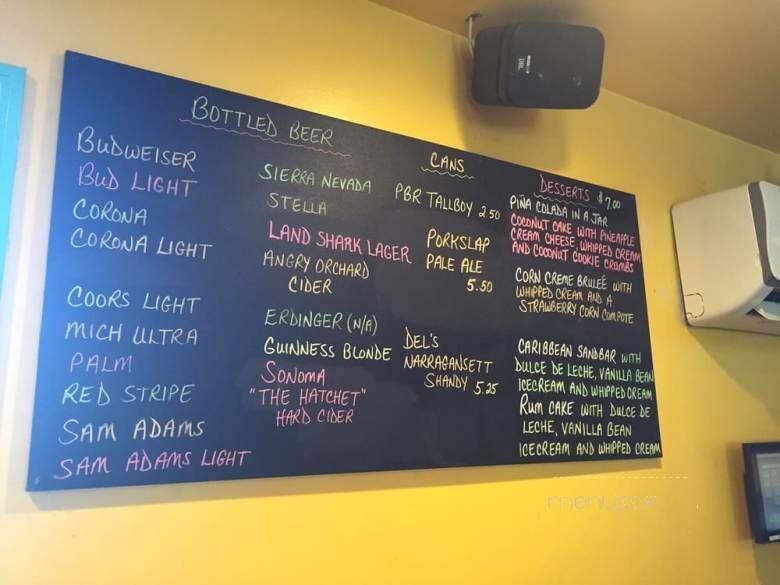 BOTTLED BEER
BUDWEISER
BUD LIGHT
CORONA
CORONA LIGHT
COORS LIGHT
MICH ULTRA
PALM
RED STRIPE
SAM ADAMS
SAM ADAMS LIGHT
SIERRA NEVADA
STELLA
LAND SHARK LAGER
ANGRY ORCHARD
CIDER
ERDINGER (N/A)
GUINNESS BLONDE
SONOMA
"THE HATCHET"
HARD CIDER
CANS
PBR TALLBOY 2.50
PORKSLAP
PALE ALE
5.50
DEL'S
NARRAGANSETT
SHANDY 5.25
DESSERTS $7.00
PIÑA COLADA IN A JAR
COCONUT CAKE WITH PINEAPPLE
CREAM CHEESE, WHIPPED CREAM
AND COCONUT COOKIE CRUMBS
CORN CREME BRULEÉ WITH
WHIPPED CREAM AND A
STRAWBERRY CORN COMPOTE
CARIBBEAN SANDBAR WITH
DULCE DE LECHE, VANILLA BEAN
ICECREAM AND WHIPPED CREAM
RUM CAKE WITH DULCE DE
LECHE, VANILLA BEAN
ICECREAM AND WHIPPED CREAM